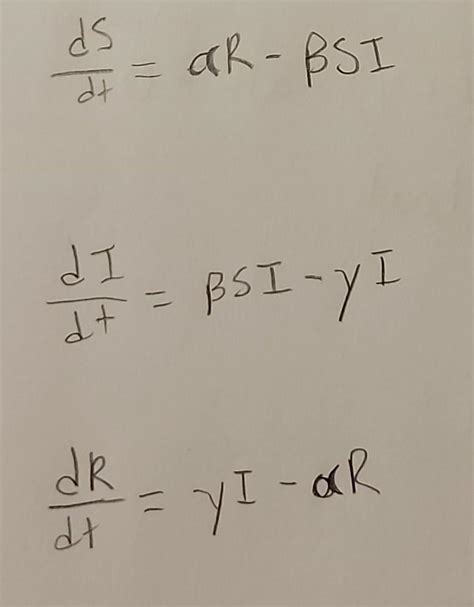 dS/dt = αR - βSI
dI/dt = βSI - γI
dR/dt = γI - αR